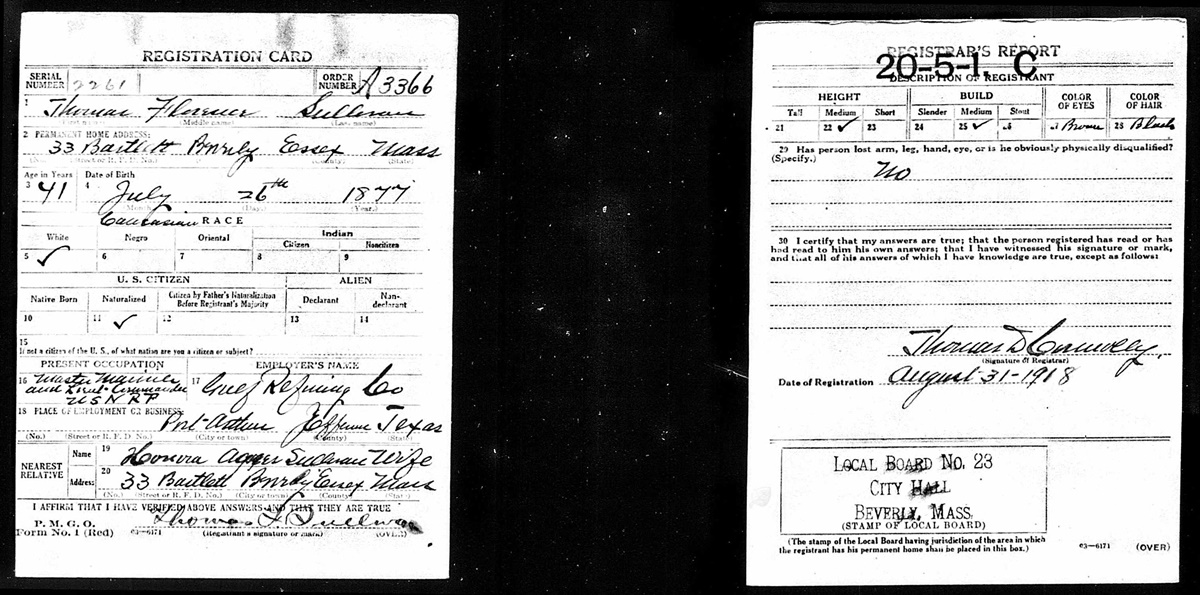 REGISTRATION CARD
SERIAL NUMBER 2261 ORDER NUMBER A3366
1 Thomas Florence Sullivan
(First name) (Middle name) (Last name)
2 PERMANENT HOME ADDRESS:
33 Bartlett Beverly Essex Mass
(No.) (Street or R. F. D. No.) (County) (State)
Age in Years Date of Birth
3 41 4 July 26th 1877
(Month) (Day) (Year)
Caucasian RACE
White Negro Oriental Indian
Citizen Noncitizen
5 ✓ 6 7 8 9
U. S. CITIZEN ALIEN
Native Born Naturalized Citizen by Father's Naturalization Before Registrant's Majority Declarant Non-declarant
10 11 ✓ 12 13 14
15
If not a citizen of the U. S., of what nation are you a citizen or subject?
PRESENT OCCUPATION EMPLOYER'S NAME
16 Master Mariner 17 Gulf Refining Co
and Lieut-Commander
USNRF
18 PLACE OF EMPLOYMENT OR BUSINESS:
Port-Arthur Jefferson Texas
(No.) (Street or R. F. D. No.) (City or town) (County) (State)
NEAREST RELATIVE Name 19 Honora Agnes Sullivan Wife
Address 20 33 Bartlett Beverly Essex Mass
(No.) (Street or R. F. D. No.) (City or town) (County) (State)
I AFFIRM THAT I HAVE VERIFIED ABOVE ANSWERS AND THAT THEY ARE TRUE
P. M. G. O.
Form No. 1 (Red) 03—6171 Thomas F. Sullivan
(Registrant's signature or mark) (OVER)
REGISTRAR'S REPORT
20-5-1, C
DESCRIPTION OF REGISTRANT
HEIGHT BUILD COLOR OF EYES COLOR OF HAIR
Tall Medium Short Slender Medium Stout
21 22 ✓ 23 24 25 ✓ 26 27 Brown 28 Black
29 Has person lost arm, leg, hand, eye, or is he obviously physically disqualified?
(Specify.)
No
30 I certify that my answers are true; that the person registered has read or has
had read to him his own answers; that I have witnessed his signature or mark,
and that all of his answers of which I have knowledge are true, except as follows:
Thomas D Connolly
(Signature of Registrar)
Date of Registration August-31-1918
LOCAL BOARD NO. 23
CITY HALL
BEVERLY, MASS.
(STAMP OF LOCAL BOARD)
(The stamp of the Local Board having jurisdiction of the area in which
the registrant has his permanent home shall be placed in this box.)
03—6171 (OVER)